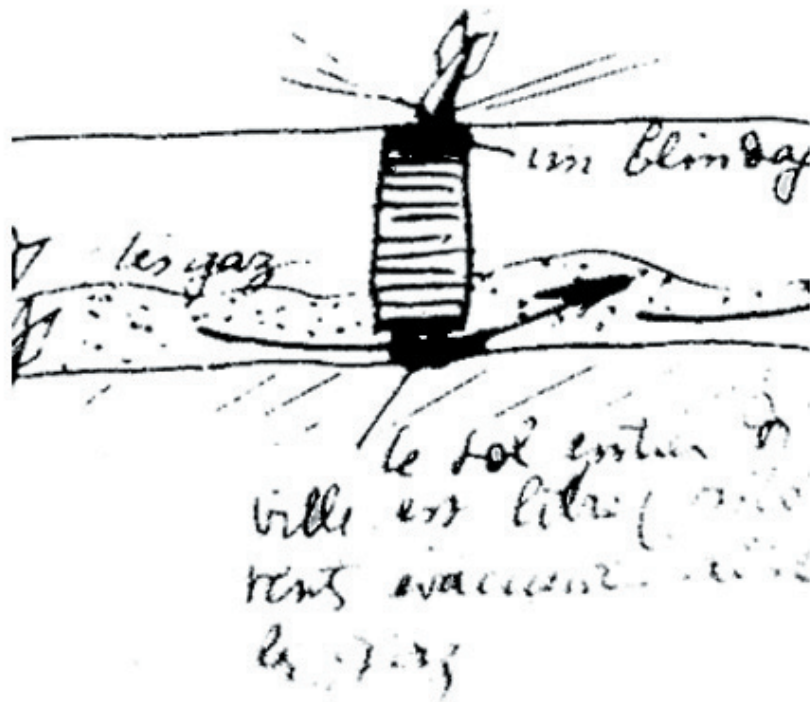 un blindag
les gaz
le sol entier d
ville est libre (
vents évacuent
les gaz